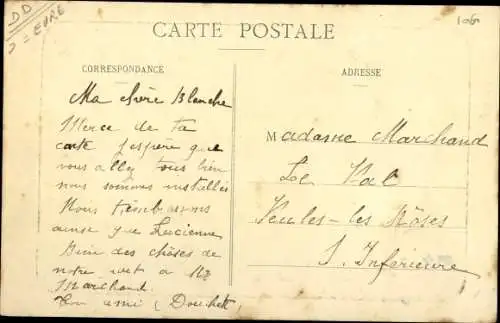 DD
= EURE
106
CARTE POSTALE
CORRESPONDANCE
ADRESSE
Ma chère Blanche
Merce de ta
carte j'espère que
vous allez tous bien
nous sommes installés
Nous t'embrassons
ainsi que Lucienne
Bien des choses de
notre part à Mr
Marchand.
Ton ami (Douchet
Madame Marchand
Le Val
Veules-les Roses
S. Inférieure